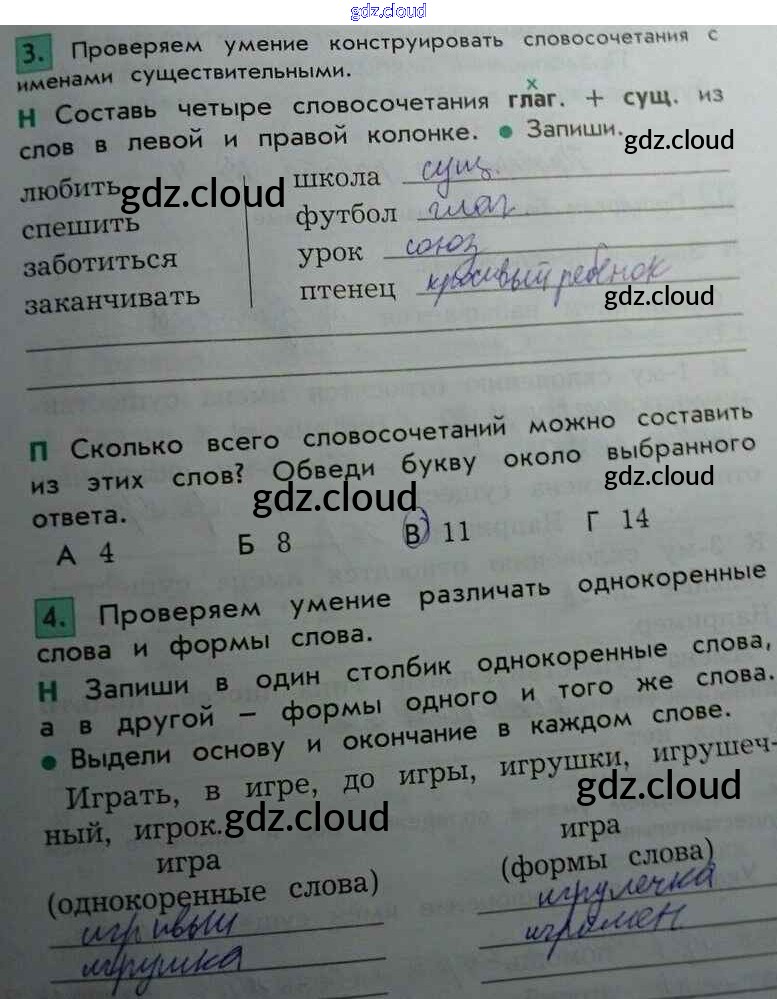 gdz.cloud
3. Проверяем умение конструировать словосочетания с
именами существительными.
х
Н Составь четыре словосочетания глаг. + сущ. из
слов в левой и правой колонке. • Запиши.
gdz.cloud
любить школа сущ.
gdz.cloud
спешить футбол глаг.
заботиться урок союз
заканчивать птенец красивый ребенок
gdz.cloud
П Сколько всего словосочетаний можно составить
из этих слов? Обведи букву около выбранного
ответа.
gdz.cloud
gdz.cloud
А 4 Б 8 В 11 Г 14
4. Проверяем умение различать однокоренные
слова и формы слова.
Н Запиши в один столбик однокоренные слова,
а в другой – формы одного и того же слова.
• Выдели основу и окончание в каждом слове.
Играть, в игре, до игры, игрушки, игрушеч-
ный, игрок.
gdz.cloud
gdz.cloud
игра игра
(однокоренные слова) (формы слова)
игривый игрулечка
игрушка играмен